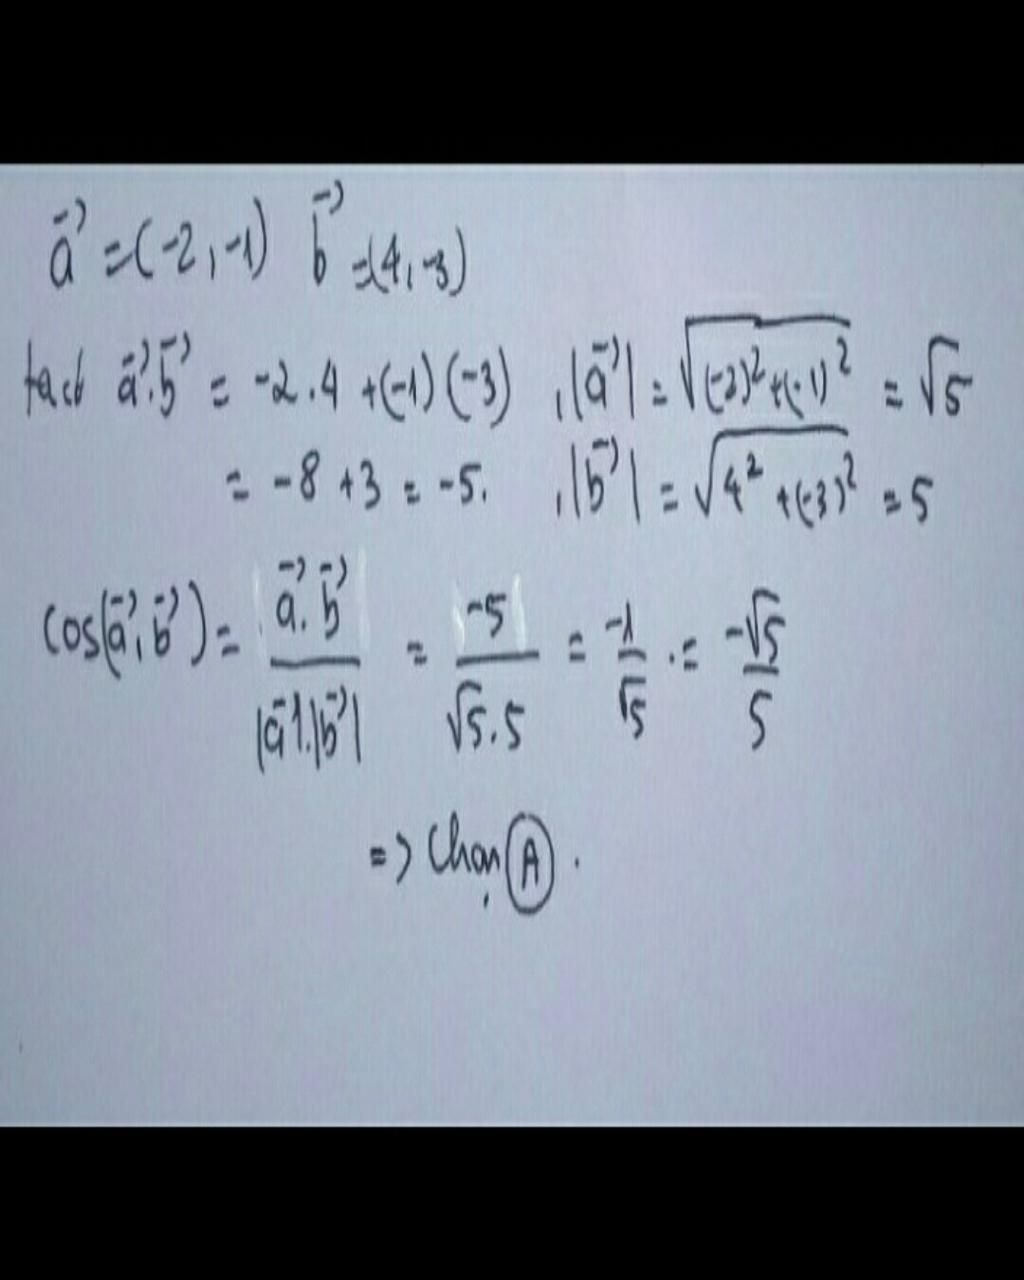 a⃗ = (-2, -1) b⃗ = (4, -3)
ta có a⃗.b⃗ = -2.4 + (-1)(-3) , |a⃗| = √((-2)² + (-1)²) = √5
= -8 + 3 = -5. , |b⃗| = √(4² + (-3)²) = 5
cos(a⃗, b⃗) = a⃗.b⃗ / |a⃗|.|b⃗| = -5 / √5.5 = -1/√5 .= -√5/5
=> Chọn A .